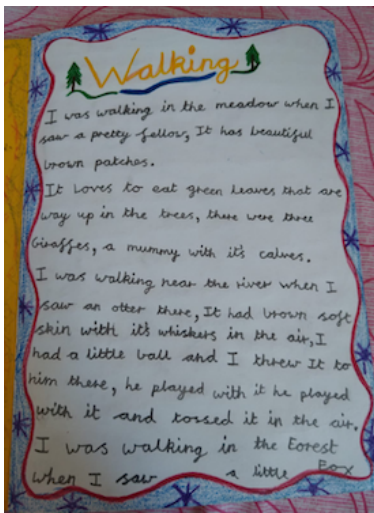 Walking
I was walking in the meadow when I
saw a pretty fellow, It has beautiful
brown patches.
It Loves to eat green leaves that are
way up in the trees, there were three
Giraffes, a mummy with it's calves.
I was walking near the river when I
saw an otter there, It had brown soft
skin with it's whiskers in the air, I
had a little ball and I threw It to
him there, he played with it he played
with it and tossed it in the air.
I was walking in the Forest
when I saw a little Fox